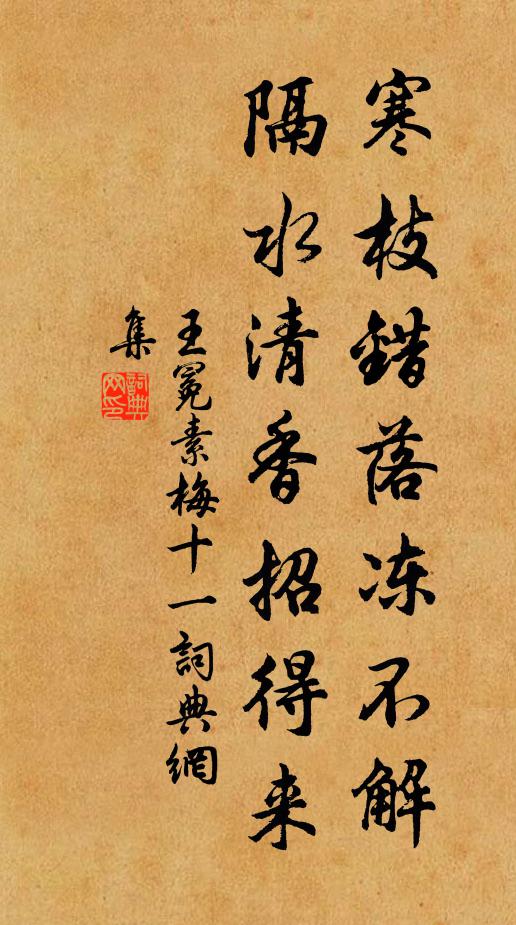 寒枝錯落冻不解
隔水清香招得来
王冕素梅十一詞典網
集
詞典网印